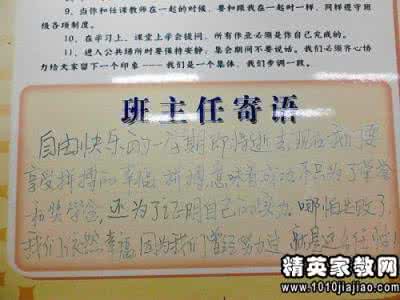 9、当你和任课教师在一起的时候，要和跟我在一起时一样，同样遵守班
级各项制度。
10、在学习上，课堂上学会提问，所有作业必须是你自己完成的。
11、进入公共场所时要保持安静；集会期间不要说话。我们必须齐心协
力给大家留下一个印象——我们是一个集体，我们步调一致。
班主任寄语
自由快乐的一星期即将逝去现在我们要
享受拼搏的幸福 拼搏 意味着成功不只为了荣誉
和奖学金，还为了证明自己的实力。哪怕失败了
我们仍然幸福，因为我们曾经努力过
精英家教网
www.1010jiajiao.com